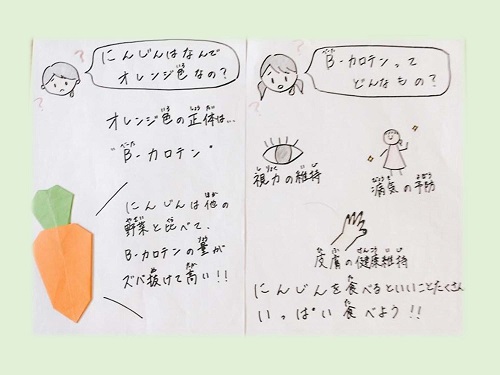 ?
にんじんはなんで
オレンジ色なの?
?
オレンジ色の正体は…
"β-カロテン"
にんじんは他の
野菜と比べて、
β-カロテンの量が
ズバ抜けて高い!!
?
β-カロテンって
どんなもの?
?
視力の維持
病気の予防
皮膚の健康維持
にんじんを食べるといいことたくさん
いっぱい食べよう!!